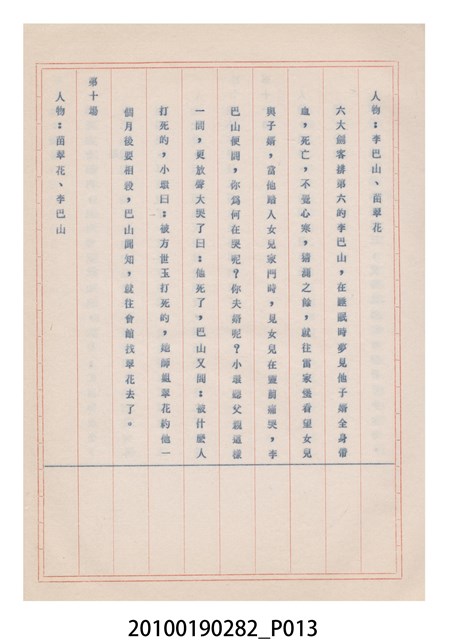 人物：李巴山、苗翠花
六大劍客排第六的李巴山，在睡眠時夢見他子婿全身帶
血，死亡，不覺心寒，猜測之餘，就往雷家堡看望女兒
與子婿，當他踏入女兒家門時，見女兒在靈前痛哭，李
巴山便問，你為何在哭呢？你夫婿呢？小環聽父親這樣
一問，更放聲大哭了曰：他死了，巴山又問：被什麼人
打死的，小環曰：被方世玉打死的，她師姐翠花約他一
個月後要相殺，巴山聞知，就往會館找翠花去了。
第十場
人物：苗翠花、李巴山
20100190282_P013